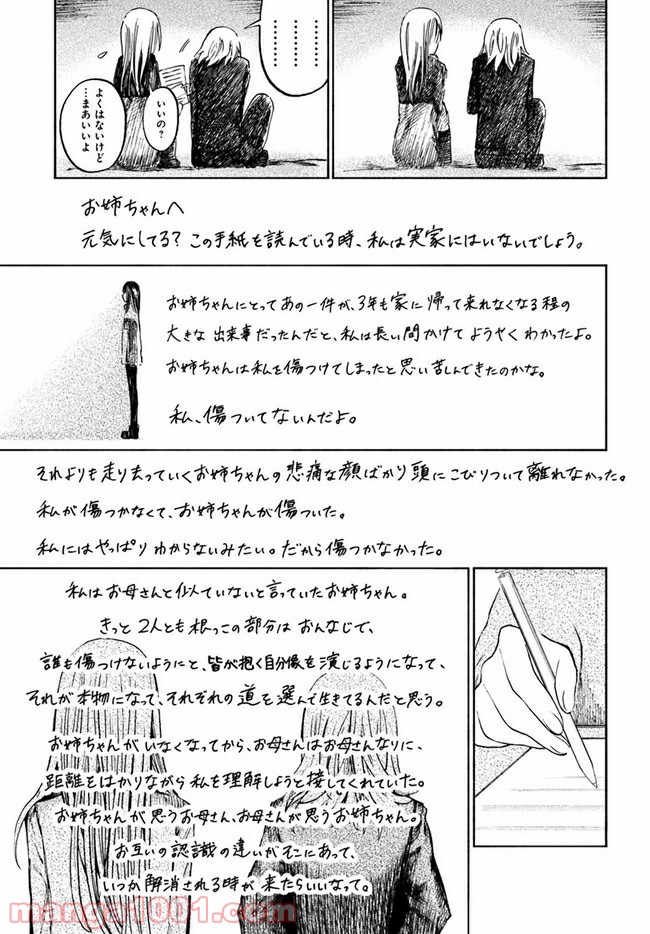 ………………
いいの？
よくはないけど
…まあいいよ
お姉ちゃんへ
元気にしてる？この手紙を読んでいる時、私は実家にはいないでしょう。
お姉ちゃんにとってあの一件が、3年も家に帰って来れなくなる程の
大きな出来事だったんだと、私は長い間かけてようやくわかったよ。
お姉ちゃんは私を傷つけてしまったと思い苦しんできたのかな。
私、傷ついてないんだよ。
それよりも走り去っていくお姉ちゃんの悲痛な顔ばかり頭にこびりついて離れなかった。
私が傷つかなくて、お姉ちゃんが傷ついた。
私にはやっぱりわからないみたい。だから傷つかなかった。
私はお母さんと似ていないと言っていたお姉ちゃん。
きっと2人とも根っこの部分はおんなじで、
誰も傷つけないようにと、皆が抱く自分像を演じるようになって、
それが本物になって、それぞれの道を選んで生きてるんだと思う。
お姉ちゃんがいなくなってから、お母さんはお母さんなりに、
距離をはかりながら私を理解しようと接してくれていた。
お姉ちゃんが思うお母さん、お母さんが思うお姉ちゃん。
お互いの認識の違いがそこにあって、
いつか解消される時が来たらいいなって。
manga1001.com